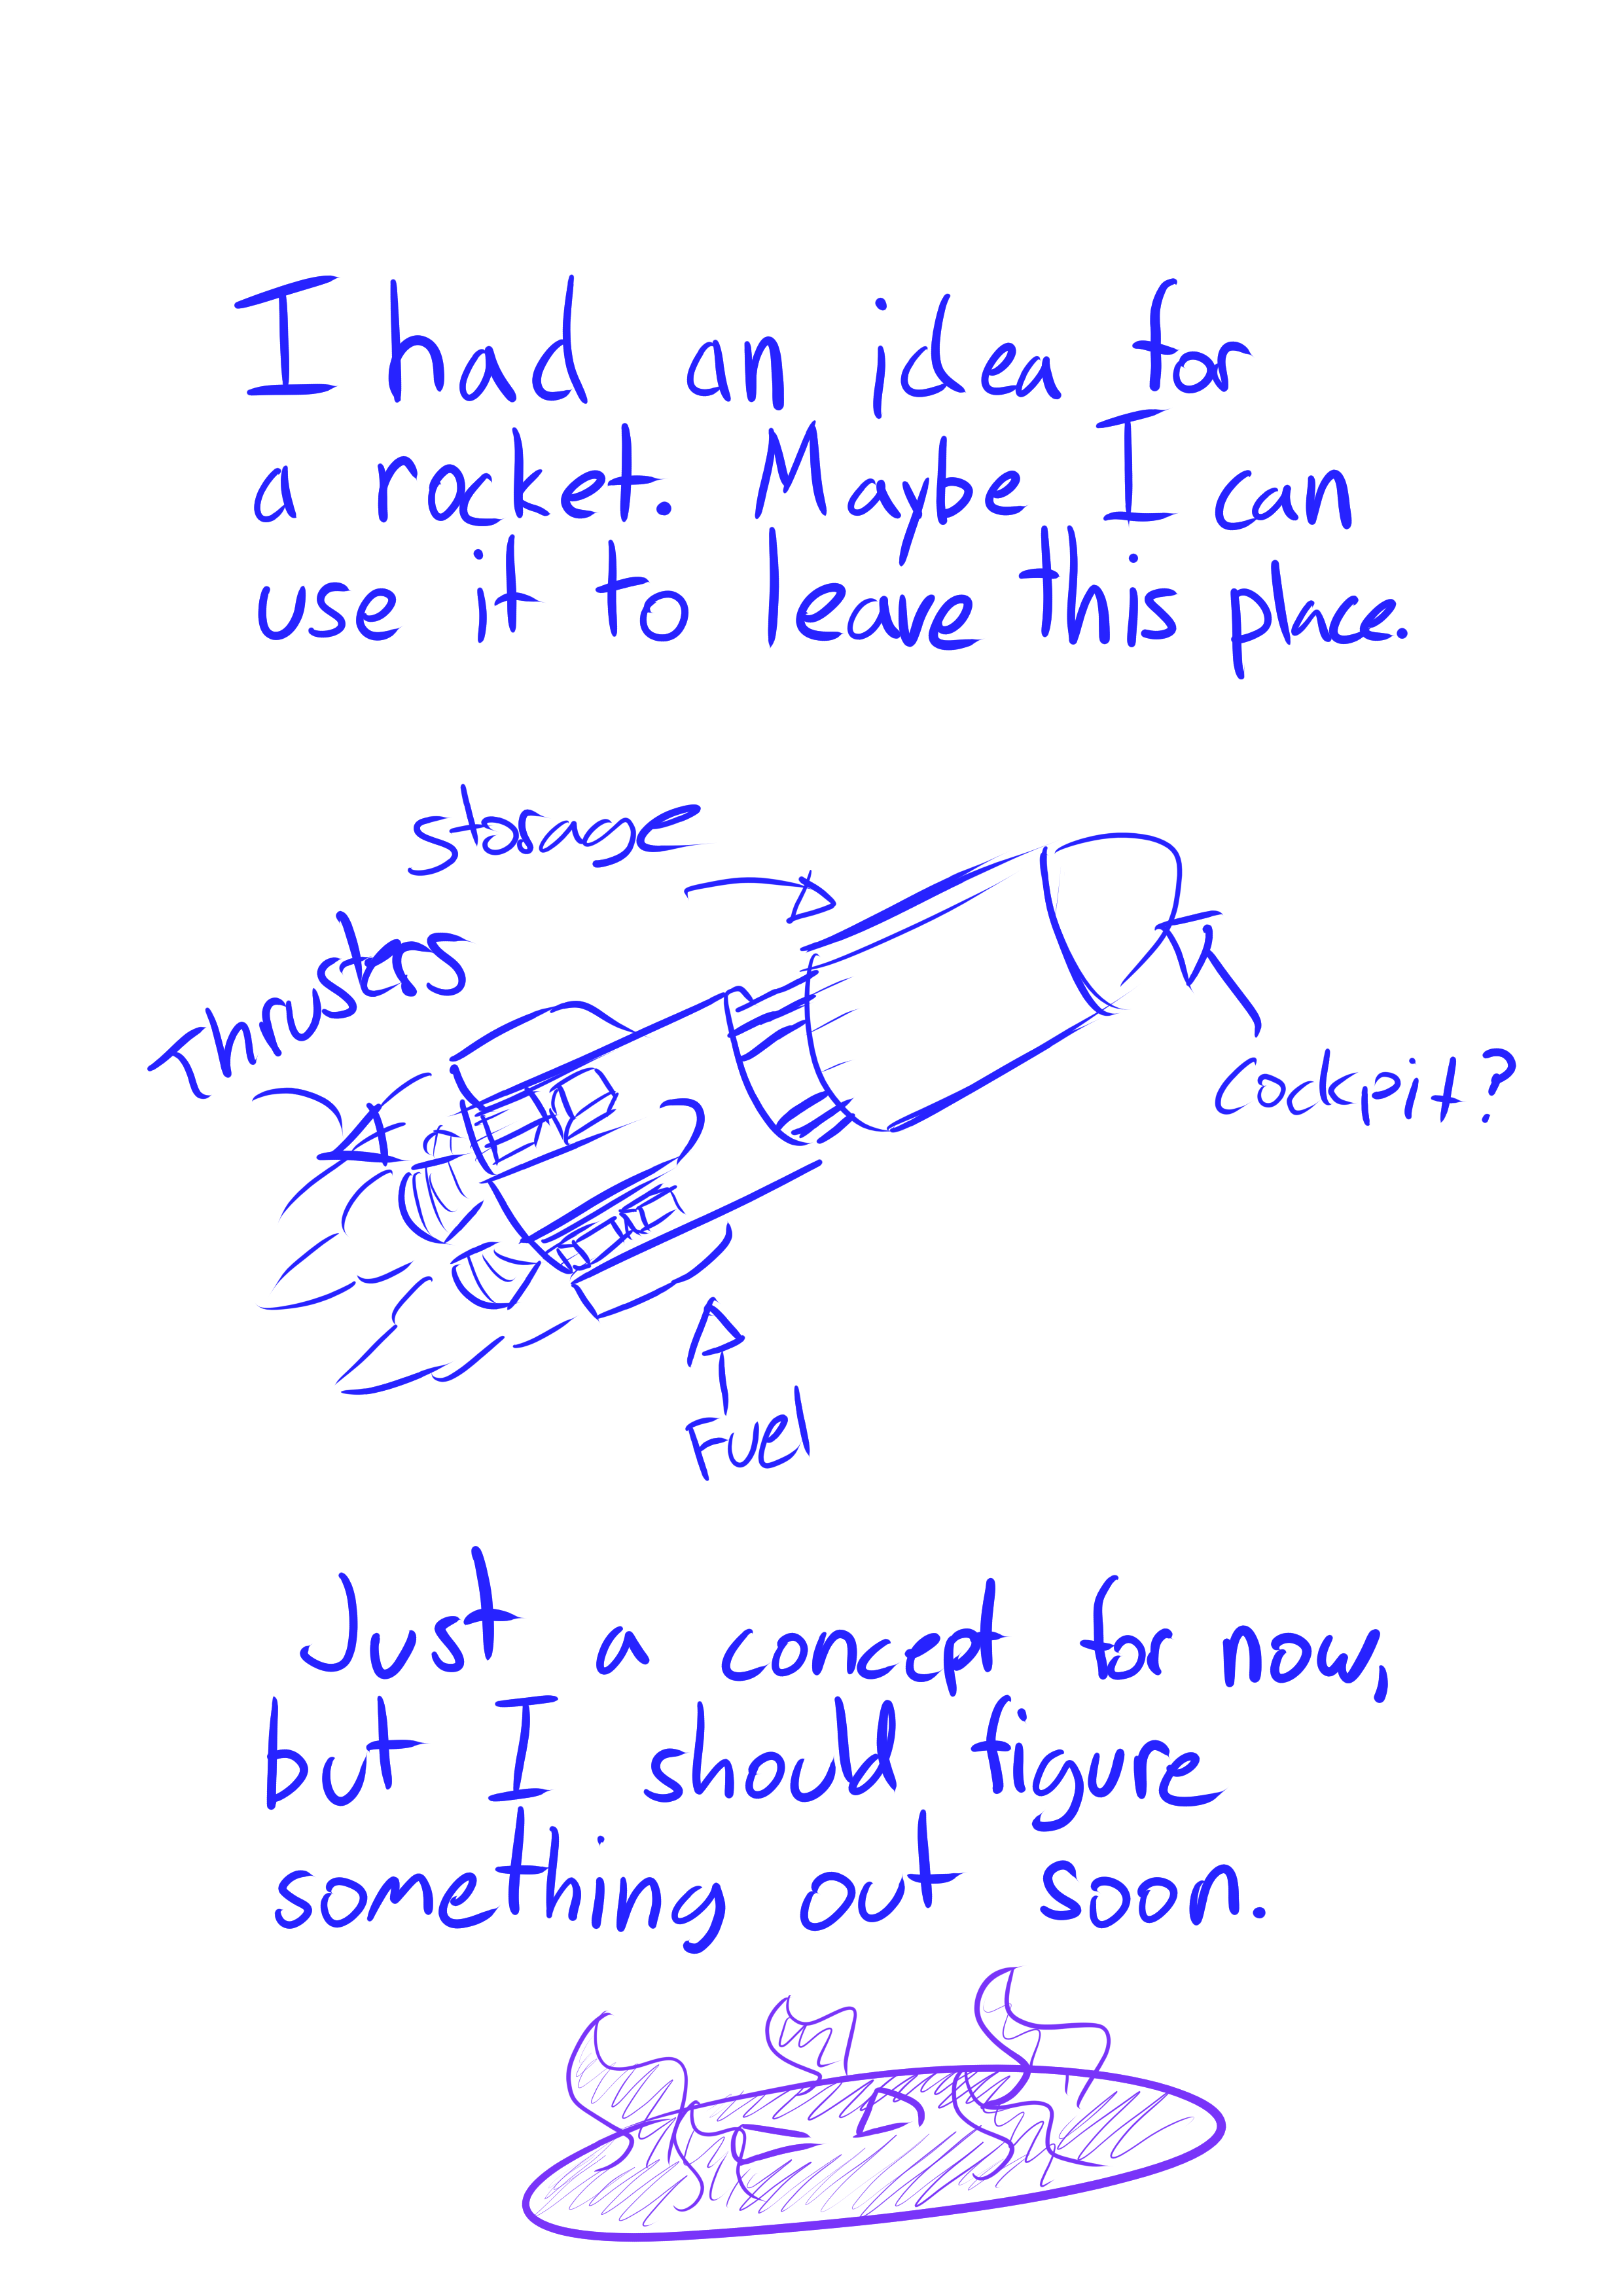 I had an idea for
a rocket. Maybe I can
use it to leave this place.
storage
Thrusters
Cockpit?
Fuel
Just a concept for now,
but I should figure
something out soon.